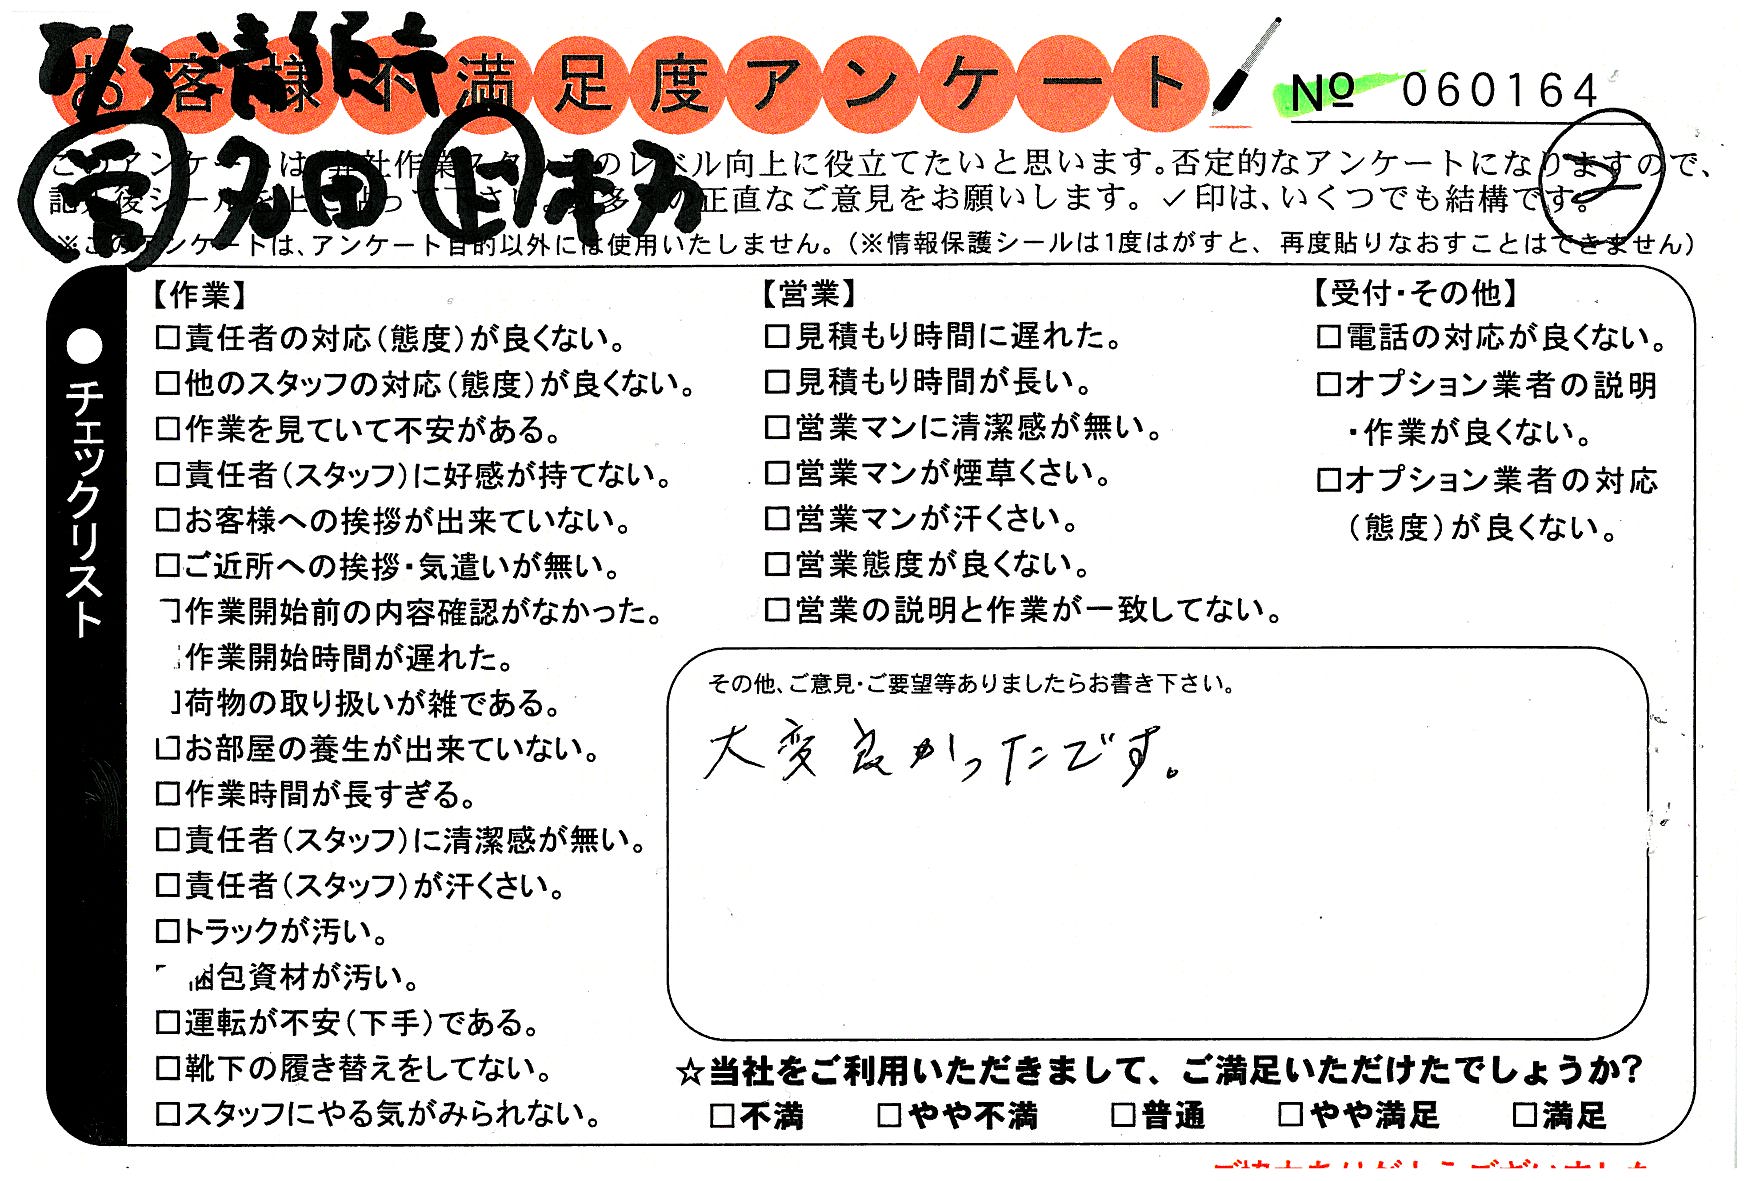 お客様不満足度アンケート
№ 060164
このアンケートは、弊社作業スタッフのレベル向上に役立てたいと思います。否定的なアンケートになりますので、
記入後シールを上に貼って下さい。 正直なご意見をお願いします。✓印は、いくつでも結構です。
※このアンケートは、アンケート目的以外には使用いたしません。（※情報保護シールは1度はがすと、再度貼りなおすことはできません）
2
●チェックリスト
【作業】
□責任者の対応（態度）が良くない。
□他のスタッフの対応（態度）が良くない。
□作業を見ていて不安がある。
□責任者（スタッフ）に好感が持てない。
□お客様への挨拶が出来ていない。
□ご近所への挨拶・気遣いが無い。
□作業開始前の内容確認がなかった。
作業開始時間が遅れた。
□荷物の取り扱いが雑である。
□お部屋の養生が出来ていない。
□作業時間が長すぎる。
□責任者（スタッフ）に清潔感が無い。
□責任者（スタッフ）が汗くさい。
□トラックが汚い。
梱包資材が汚い。
□運転が不安（下手）である。
□靴下の履き替えをしてない。
□スタッフにやる気がみられない。
【営業】
□見積もり時間に遅れた。
□見積もり時間が長い。
□営業マンに清潔感が無い。
□営業マンが煙草くさい。
□営業マンが汗くさい。
□営業態度が良くない。
□営業の説明と作業が一致してない。
【受付・その他】
□電話の対応が良くない。
□オプション業者の説明
・作業が良くない。
□オプション業者の対応
（態度）が良くない。
その他、ご意見・ご要望等ありましたらお書き下さい。
大変良かったです。
☆当社をご利用いただきまして、ご満足いただけたでしょうか？
□不満 □やや不満 □普通 □やや満足 □満足
ご協力ありがとうございました